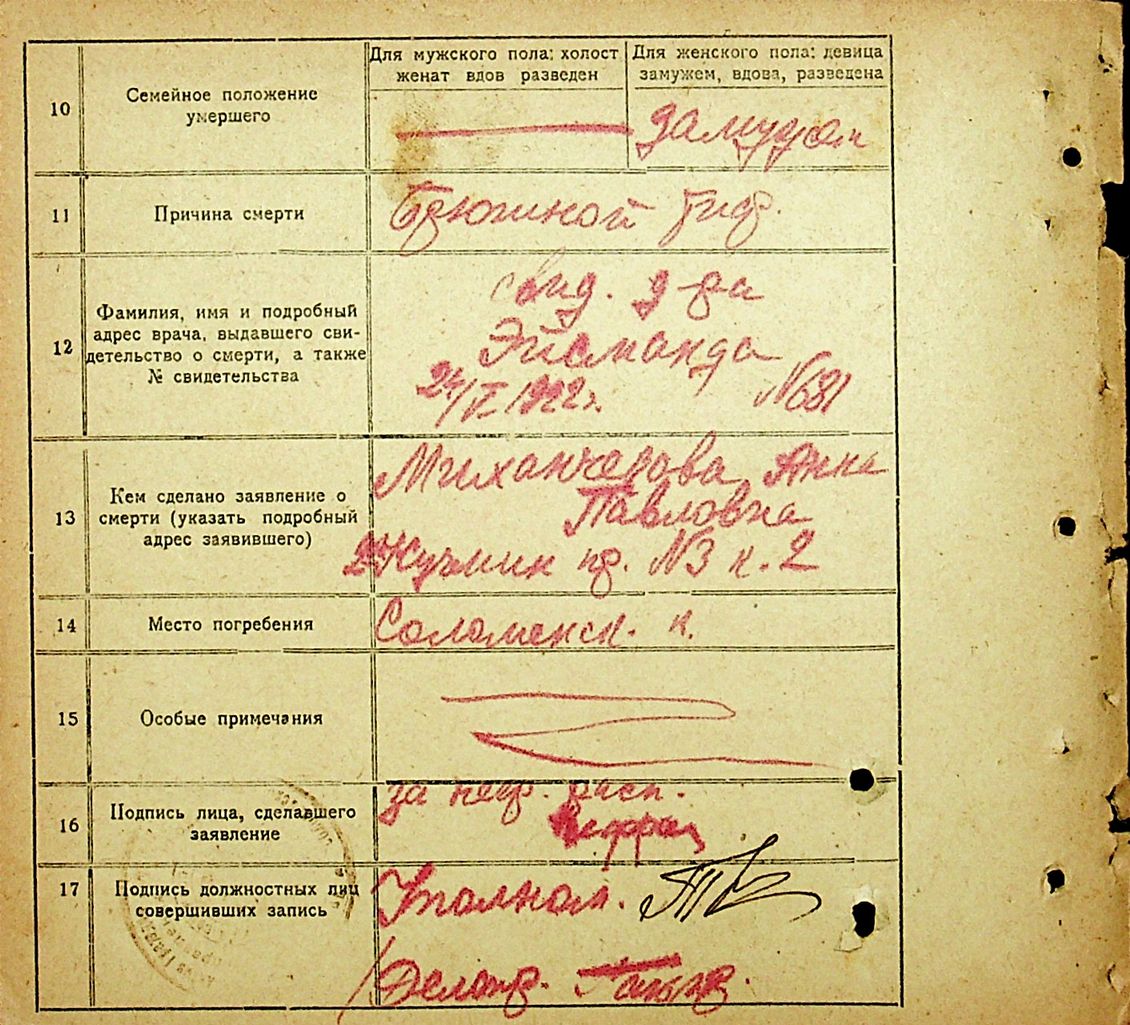 Для мужского пола: холост
женат вдов разведен
Для женского пола: девица
замужем, вдова, разведена
10
Семейное положение
умершего
замужем
11
Причина смерти
Брюшной тиф.
12
Фамилия, имя и подробный
адрес врача, выдавшего сви-
детельство о смерти, а также
№ свидетельства
свид. д-ра
Эйсманда
24/V 1922 г. №681
13
Кем сделано заявление о
смерти (указать подробный
адрес заявившего)
Анна
Павловна
пр. №3 к. 2
14
Место погребения
Соломенск. к.
15
Особые примечания
16
Подпись лица, сделавшего
заявление
за негр. расп.
17
Подпись должностных лиц
совершивших запись
Уполном.
Делопр.